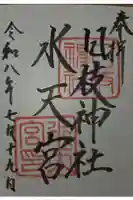 奉拝
日枝神社
水天宮
令和八年七月十九日